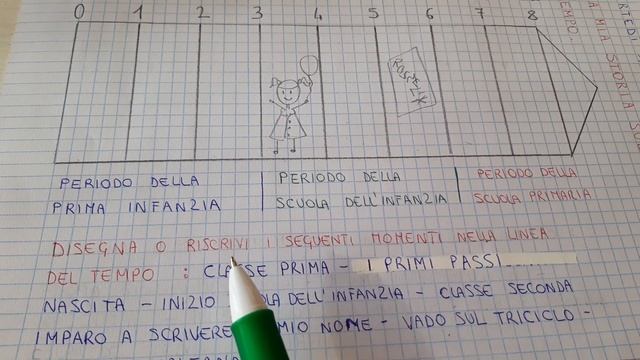 0 1 2 3 4 5 6 7 8
PERIODO DELLA PRIMA INFANZIA
PERIODO DELLA SCUOLA DELL'INFANZIA
PERIODO DELLA SCUOLA PRIMARIA
DISEGNA O RISCRIVI I SEGUENTI MOMENTI NELLA LINEA
DEL TEMPO : CLASSE PRIMA - I PRIMI PASSI..........
NASCITA - INIZIO DELL'INFANZIA - CLASSE SECONDA
IMPARO A SCRIVERE MIO NOME - VADO SUL TRICICLO -
A MIA STORIA SUL
TEMPO.